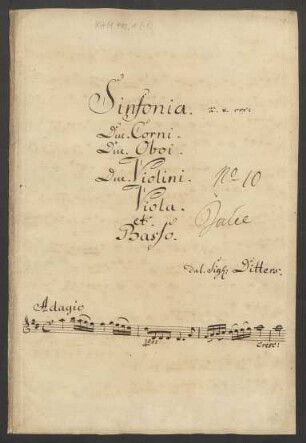 Sinfonia.
Due. Corni.
Due. Oboi.
Due. Violini.
No 10
Viola.
et
Basso.
dal. Sigr. Ditters.
Adagio
cresc: